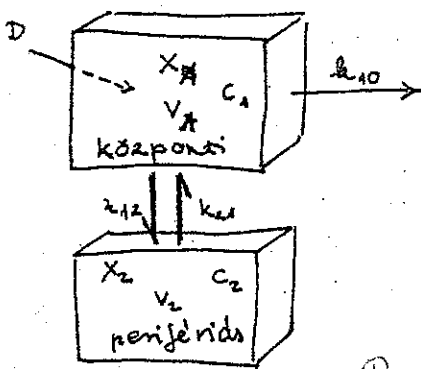 D
X₁
V₁ C₁
központi
k₁₀
k₁₂ k₂₁
X₂ C₂
V₂
perifériás